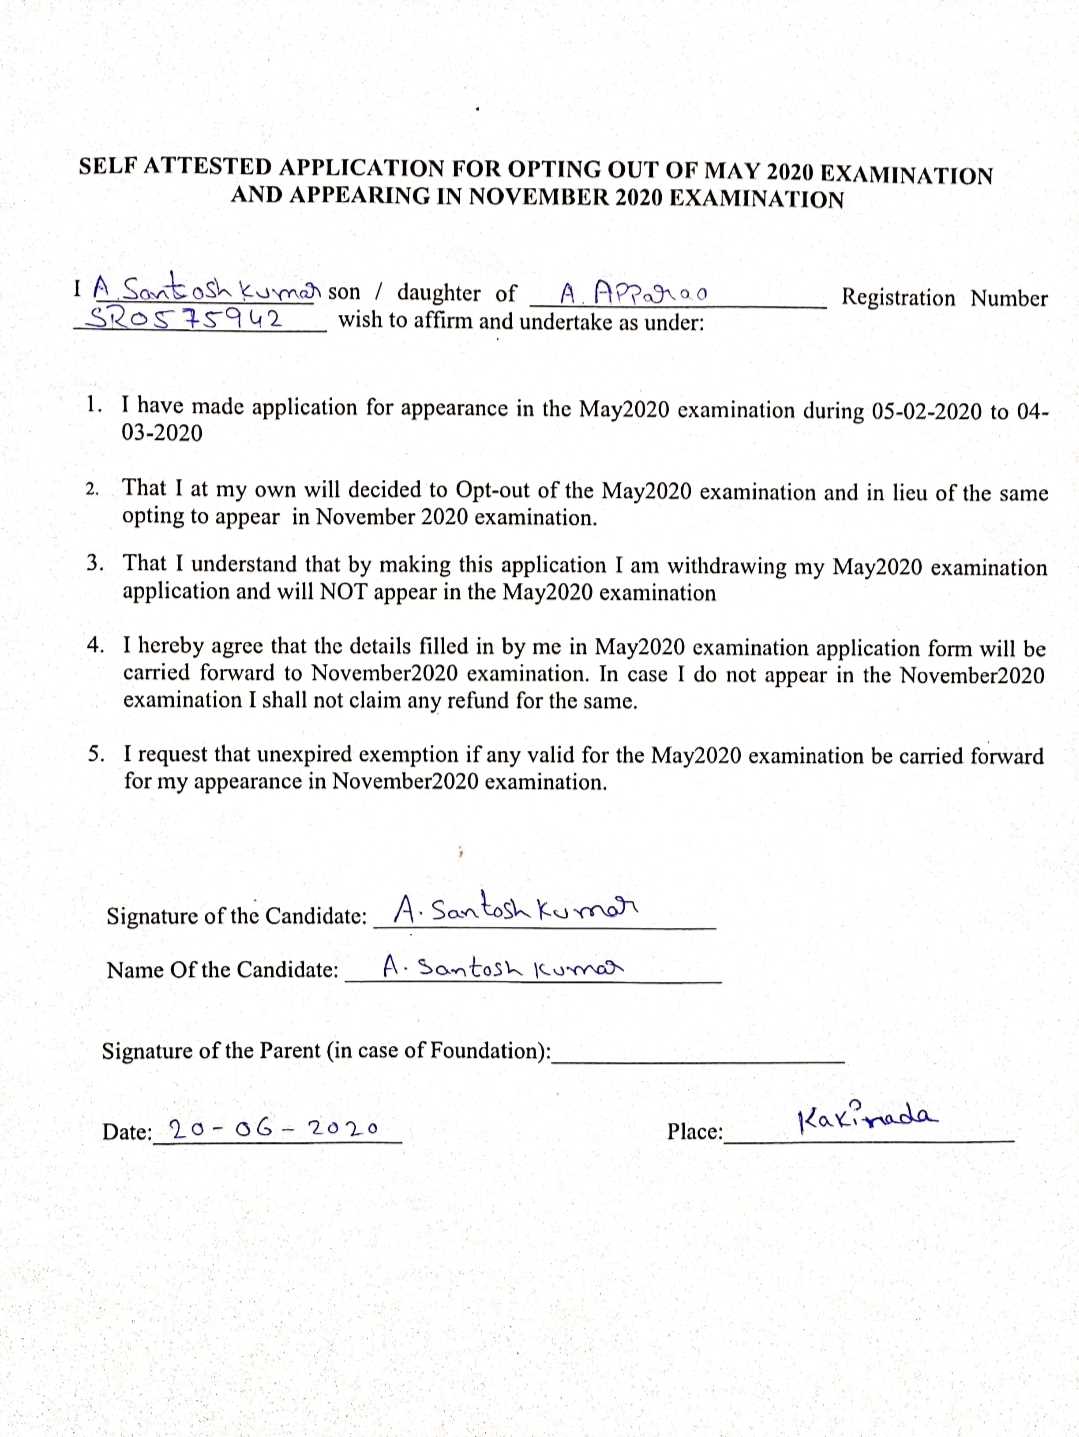 SELF ATTESTED APPLICATION FOR OPTING OUT OF MAY 2020 EXAMINATION
AND APPEARING IN NOVEMBER 2020 EXAMINATION
I A. Santosh Kumar son / daughter of A. APParao Registration Number
SRO575942 wish to affirm and undertake as under:
1. I have made application for appearance in the May2020 examination during 05-02-2020 to 04-
03-2020
2. That I at my own will decided to Opt-out of the May2020 examination and in lieu of the same
opting to appear in November 2020 examination.
3. That I understand that by making this application I am withdrawing my May2020 examination
application and will NOT appear in the May2020 examination
4. I hereby agree that the details filled in by me in May2020 examination application form will be
carried forward to November2020 examination. In case I do not appear in the November2020
examination I shall not claim any refund for the same.
5. I request that unexpired exemption if any valid for the May2020 examination be carried forward
for my appearance in November2020 examination.
Signature of the Candidate: A. Santosh Kumar
Name Of the Candidate: A. Santosh Kumar
Signature of the Parent (in case of Foundation):
Date: 20-06-2020 Place: Kakinada